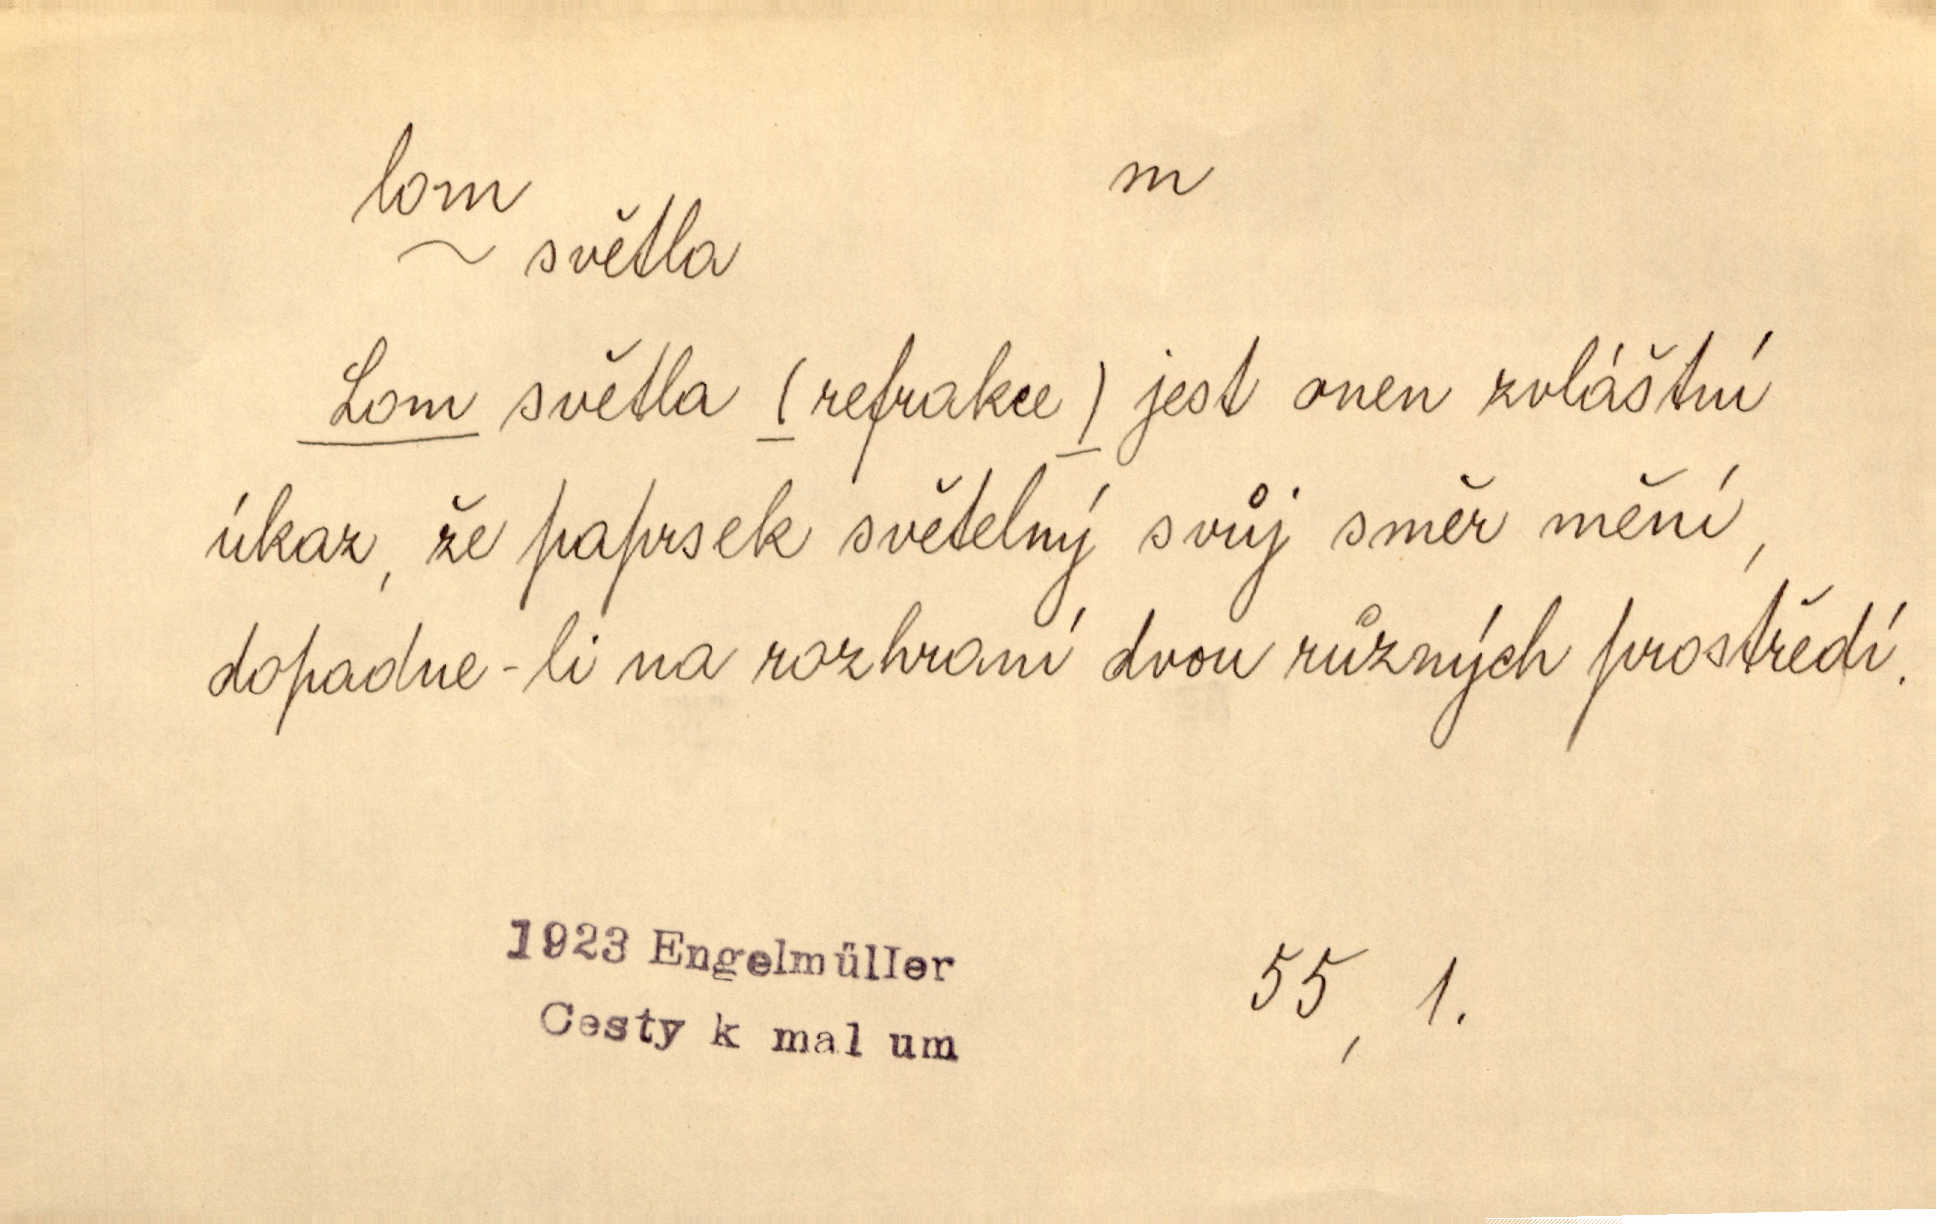 lom m
~ světla
Lom světla (refrakce) jest onen zvláštní
úkaz, že paprsek světelný svůj směr mění,
dopadne-li na rozhraní dvou různých prostředí.
1923 Engelmüller 55, 1.
Cesty k mal um